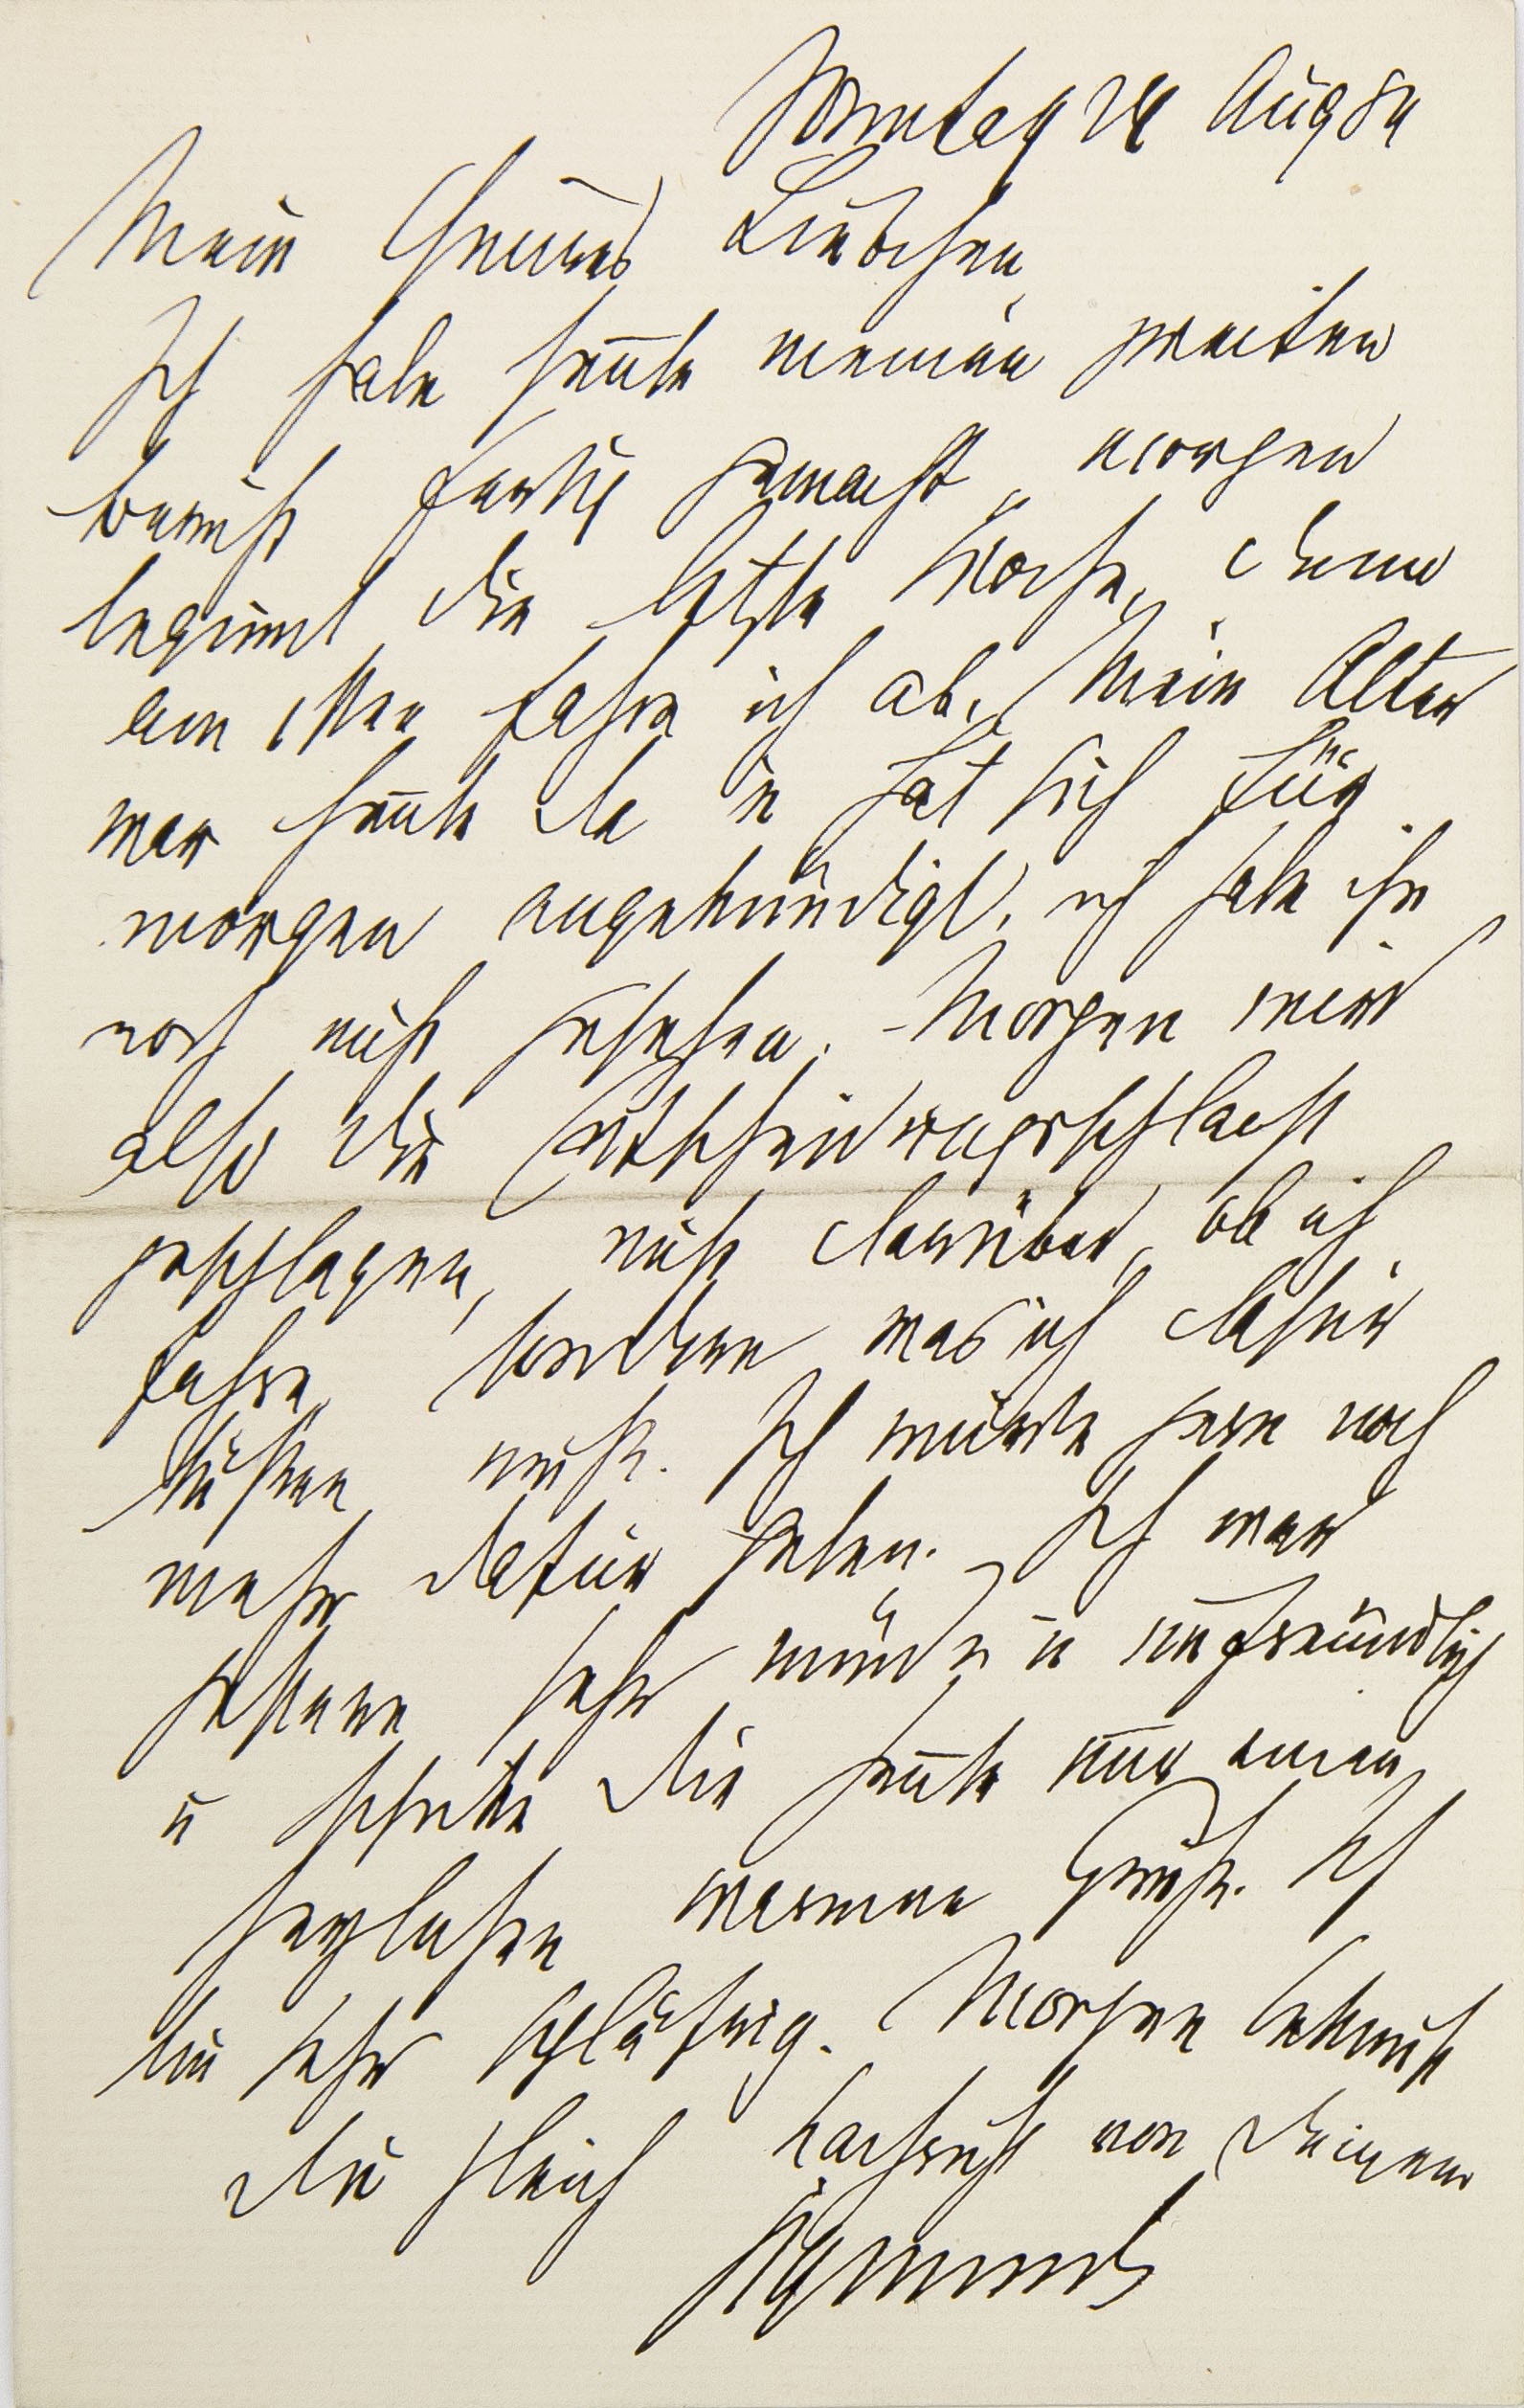 Sonntag 24 Aug 84
Mein theures Liebchen
Ich habe heute meinen zweiten
Bericht fertig gemacht, morgen
beginnt die letzte Woche, denn
am 1sten fahre ich ab. Mein Alter
war heute da u hat sich für
morgen angekündigt, ich habe ihn
noch nicht gesehen. – Morgen wird
also die Entscheidungsschlacht
geschlagen, nicht darüber, ob ich
fahre, sondern was ich dafür
büßen muß. Ich würde gern noch
mehr dafür geben. Ich war
gestern sehr müde u unfreundlich
u schicke Dir heute nur einen
herzlichen warmen Gruß. Ich
bin sehr schläfrig. Morgen bekommst
Du gleich Nachricht von Deinem
Sigmund